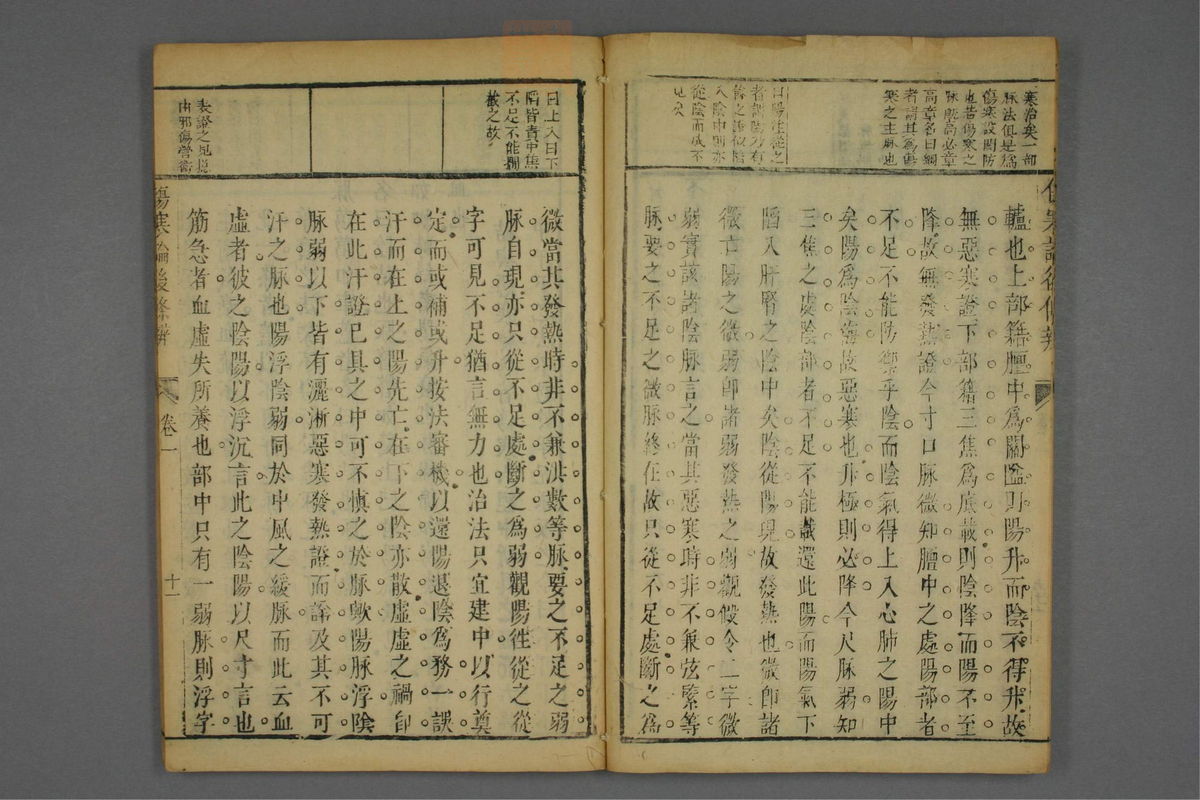 寒治矣一部
脉法俱是爲
傷寒設關防
也若傷寒之
脉既高必章
高章名曰綱
者謂其爲傷
寒之主脉也
曰陽往從之
者謂陽乃有
入陰中則亦
從陰而成不
足矣
轤也上部籍膻中爲關監則陽升而陰不得升故
無惡寒證下部籍三焦爲底載則陰降而陽不至
降故無發熱證今寸口脉微知膻中之處陽部者
不足不能防禦乎陰而陰氣得上入心肺之陽中
矣陽爲陰掩故惡寒也升極則必降今尺脉弱知
三焦之處陰部者不足不能載還此陽而陽氣下
陷入肝腎之陰中矣陰從陽現故發熱也微即諸
微亡陽之微弱即諸弱發熱之弱觀假令二字微
弱實該諸陰脉言之當其惡寒時非不兼弦緊等
脉要之不足之微脉終在故只從不足處斷之爲
傷寒論後條辨
曰上入曰下
陷皆責中焦
不足不能攔
截之故
表證之見總
由邪傷營衛
微當其發熱時非不兼洪數等脉要之不足之弱
脉自現亦只從不足處斷之爲弱觀陽往從之從
字可見不足猶言無力也治法只宜建中以行奠
定而或補或升按法審機以還陽退陰爲務一誤
汗而在上之陽先亡在下之陰亦散虛虛之禍卽
在此汗證已具之中可不慎之於脉歟陽脉浮陰
脉弱以下皆有灑淅惡寒發熱證而諦及其不可
汗之脉也陽浮陰弱同於中風之緩脉而此云血
虛者彼之陰陽以浮沉言此之陰陽以尺寸言也
筋急者血虛失所養也部中只有一弱脉則浮字
傷寒論後條辨
卷一
十一